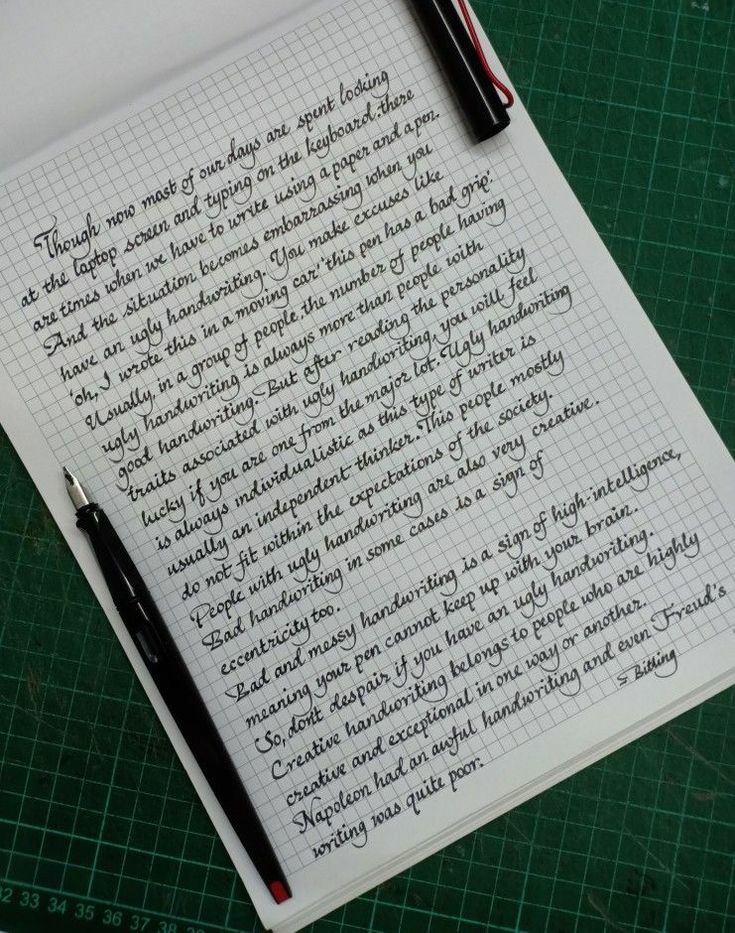 Though now most of our days are spent looking
at the laptop screen and typing on the keyboard, there
are times when we have to write using a paper and a pen.
And the situation becomes embarrassing when you
have an ugly handwriting. You make excuses like
'oh, I wrote this in a moving car' 'this pen has a bad grip'.
Usually, in a group of people, the number of people having
ugly handwriting is always more than people with
good handwriting. But after reading the personality
traits associated with ugly handwriting, you will feel
lucky if you are one from the major lot. Ugly handwriting
is always individualistic as this type of writer is
usually an independent thinker. This people mostly
do not fit within the expectations of the society.
People with ugly handwriting are also very creative.
Bad handwriting in some cases is a sign of
eccentricity too.
Bad and messy handwriting is a sign of high intelligence,
meaning your pen cannot keep up with your brain.
So, don't despair if you have an ugly handwriting.
Creative handwriting belongs to people who are highly
creative and exceptional in one way or another.
Napoleon had an awful handwriting and even Freud's
writing was quite poor.
32 33 34 35 36 37 38